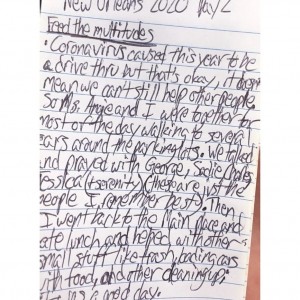 New Orleans 2020 Day 2
Feed the multitudes
• Coronavirus caused this year to be
a drive thru but that's okay, it doesn't
mean we can't still help other people.
So Ms. Angie and I were together for
most of the day walking to several
cars around the parking lots. We talked
and prayed with George, Sadie, Charles,
Jessica (+ serenity) (these are just the
people I remember best). Then
I went back to the main place and
ate lunch and helped with other
small stuff like trash, loading cars
with food, and other cleaning up.
It was a good day.